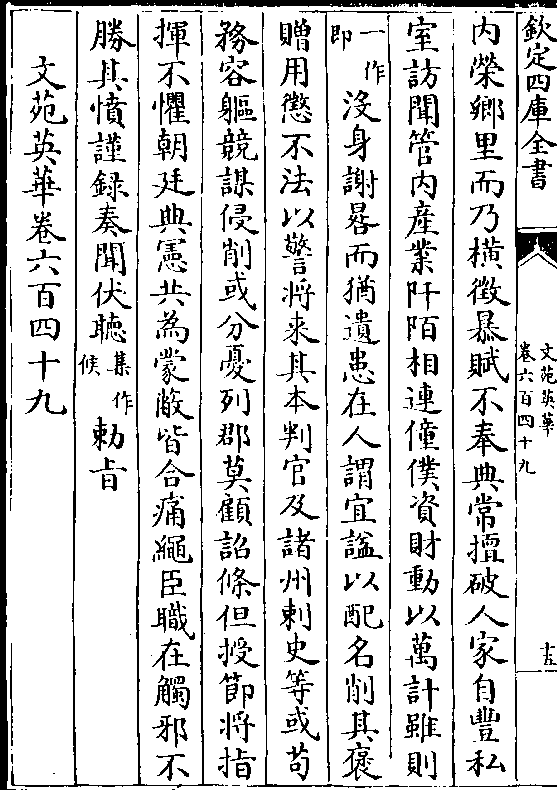 欽定四庫全書
文苑英華
卷六百四十九
十五
内榮鄉里而乃橫徴暴賦不奉典常擅破人家自豐私
室訪聞管内産業阡陌相連僮僕資財動以萬計雖則
一作
即
沒身謝晷而猶遺患在人謂宜諡以配名削其褒
贈用懲不法以警將来其本判官及諸州刺史等或苟
務容軀競謀侵削或分憂列郡莫顧詔條但授節將指
揮不懼朝廷典憲共為蒙敝皆合痛繩臣職在觸邪不
勝其憤謹録奏聞伏聴
集作
候
勅㫖
文苑英華卷六百四十九